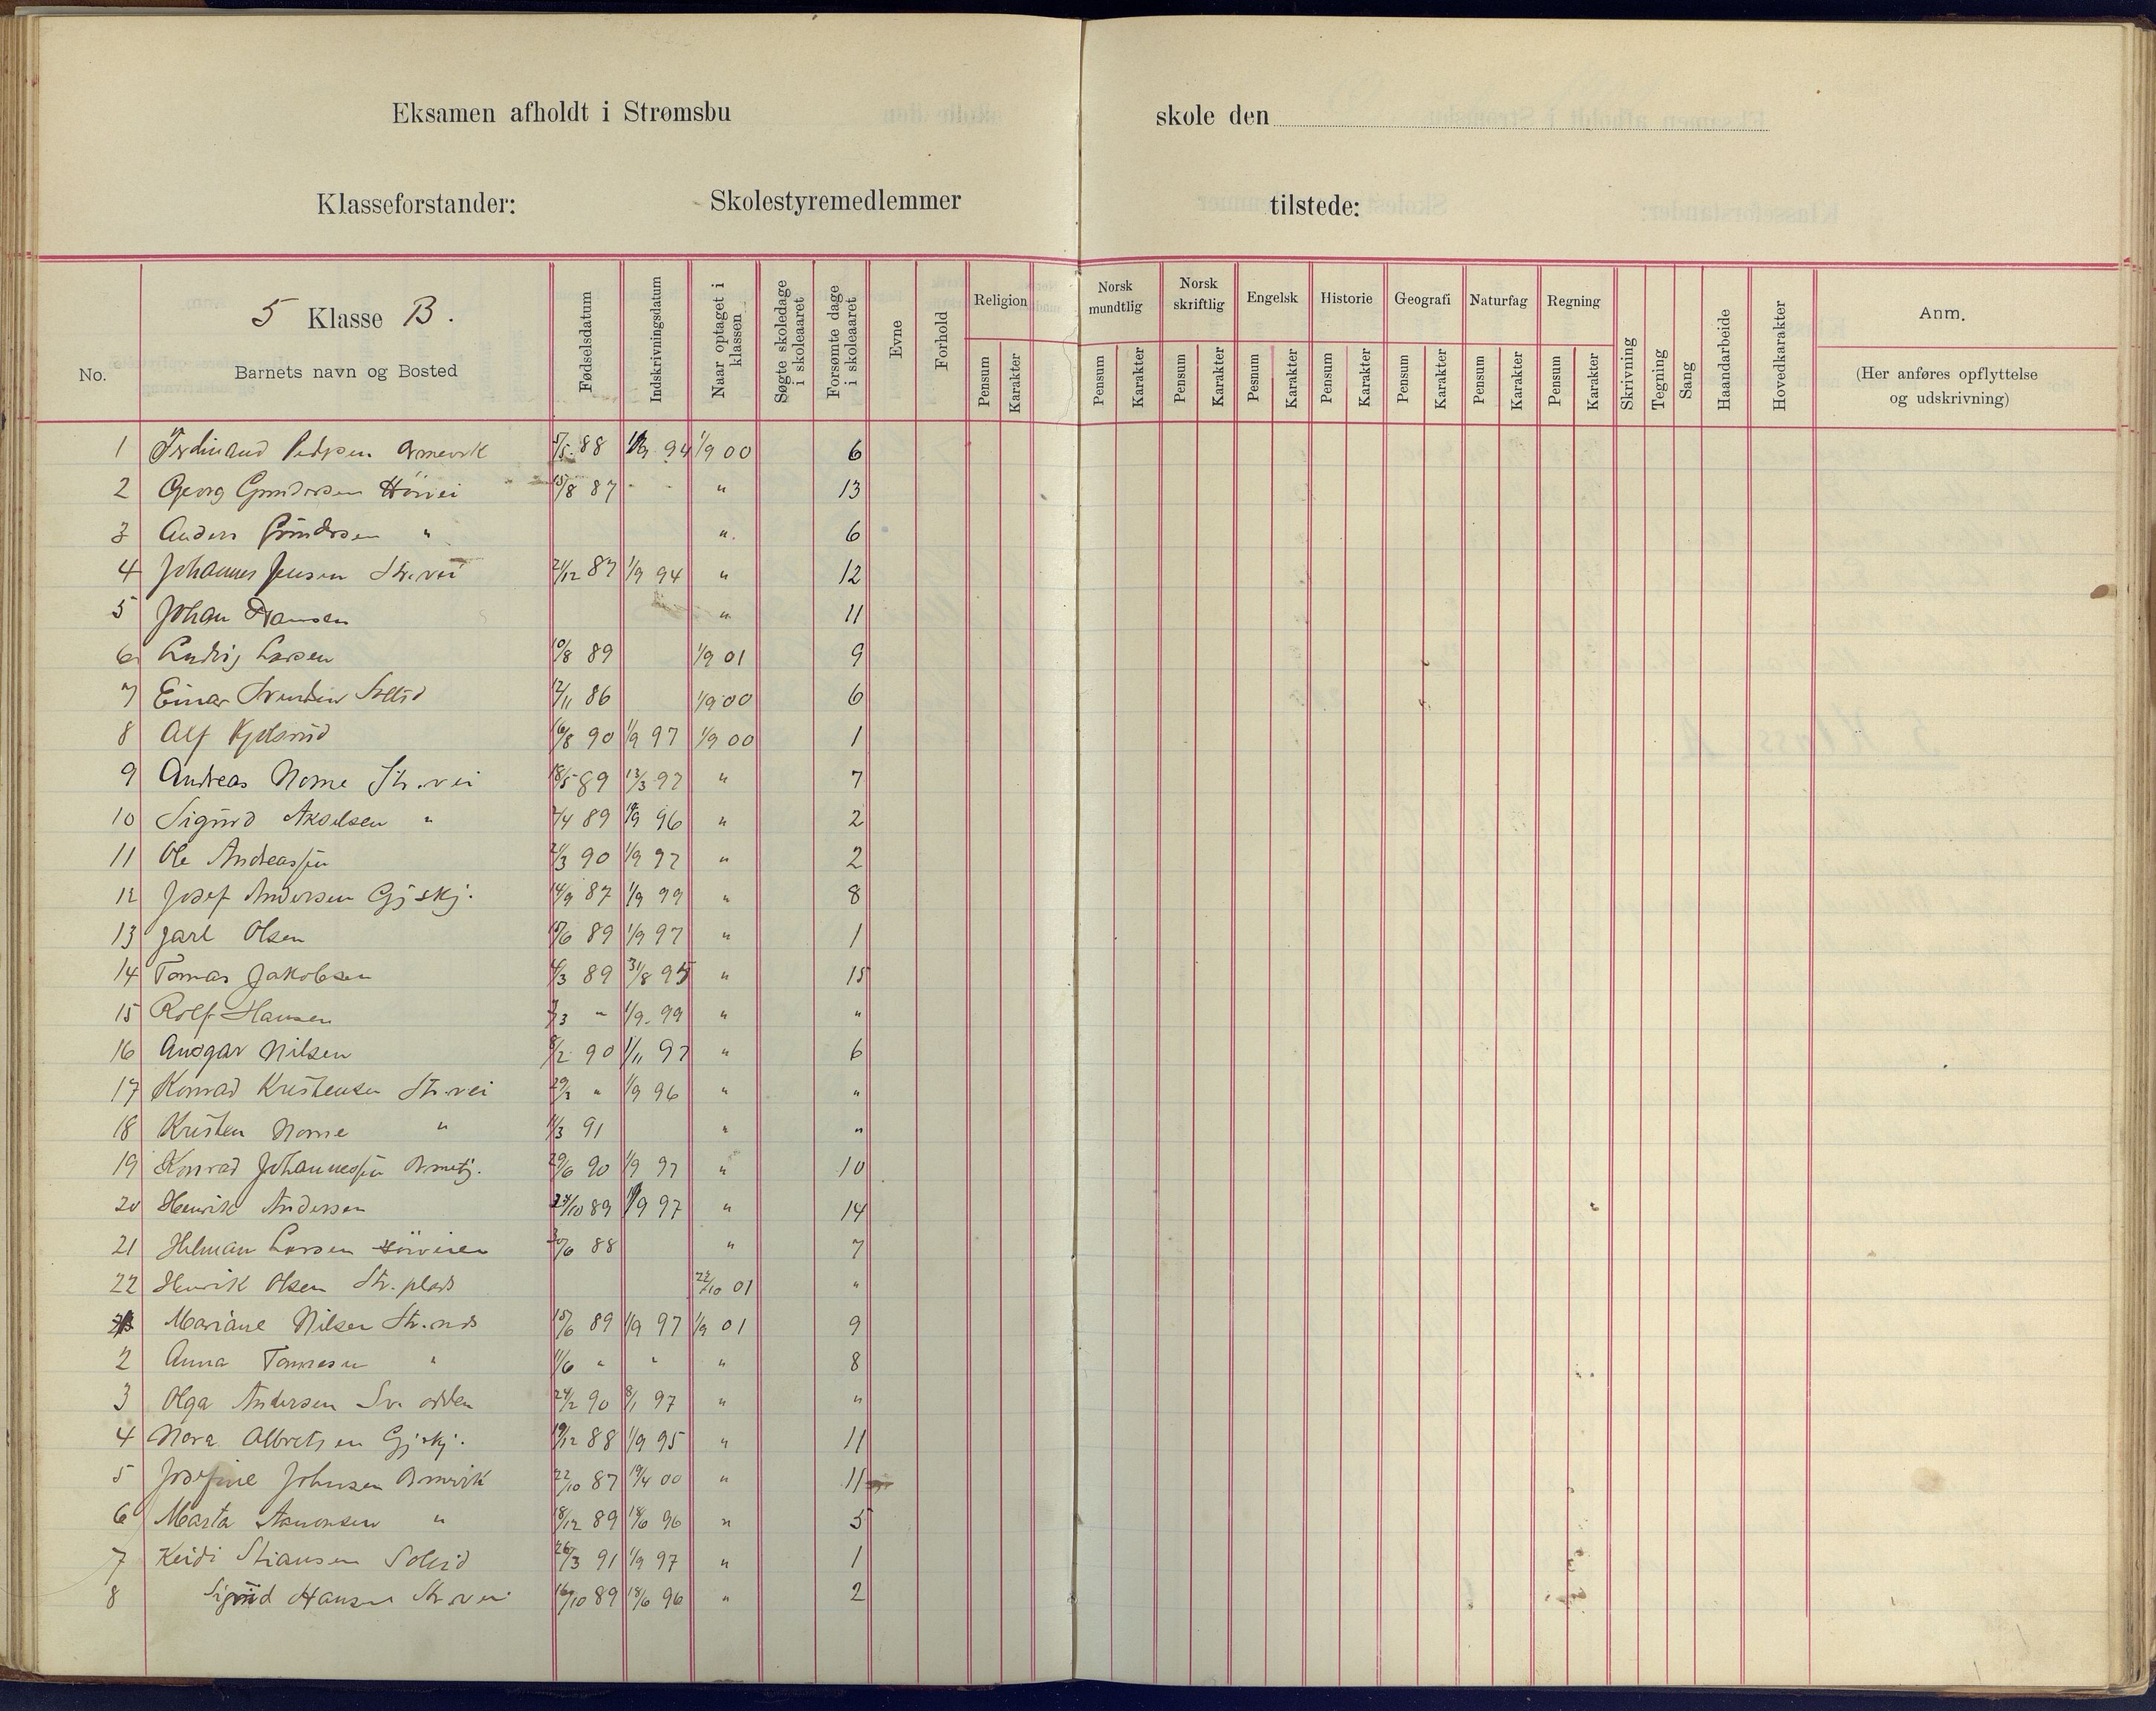 Eksamen afholdt i Strømsbu skole den
Klasseforstander: Skolestyremedlemmer tilstede:
No.
5 Klasse B.
Barnets navn og Bosted
Fødselsdatum
Indskrivningsdatum
Naar optaget i klassen
Søgte skoledage i skoleaaret
Forsømte dage i skoleaaret
Evne
Forhold
Religion Pensum Karakter
Norsk mundtlig Pensum Karakter
Norsk skriftlig Pensum Karakter
Engelsk Pesnum Karakter
Historie Pensum Karakter
Geografi Pensum Karakter
Naturfag Pensum Karakter
Regning Pensum Karakter
Skrivning
Tegning
Sang
Haandarbeide
Hovedkarakter
Anm.
(Her anføres opflyttelse og udskrivning)
1 Ferdinand Pedersen 88 94 1/9 00 6
2 Georg Gundersen 15/8 87 " 13
3 Anders Gundersen " " 6
4 Johannes Jensen Str.vei 21/12 87 1/9 94 " 12
5 Johan Hansen " 11
6 Ludvig Larsen 10/8 89 1/9 01 9
7 Einar 12/11 86 1/9 00 6
8 Alf 16/8 90 1/9 97 1/9 00 1
9 Andreas Nome Str.vei 18/5 89 13/3 97 " 7
10 Sigurd Akselsen " 2/4 89 96 " 2
11 Ole Andreassen 21/3 90 1/9 97 " 2
12 Josef Andersen Gjskj. 14/9 87 1/9 99 " 8
13 Jarl Olsen 89 1/9 97 " 1
14 Tomas Jakobsen 89 31/8 95 " 15
15 Rolf Hansen " 1/9 99 " "
16 Ansgar Nilsen 8/2 90 1/11 97 " 6
17 Konrad Kristensen Str.vei " 1/9 96 " "
18 Kristen Nome " 11/3 91 " "
19 Konrad Johannessen 29/6 90 1/9 97 " 10
20 Henrik Andersen 24/10 89 1/9 97 " 14
21 Hilmar Larsen 30/6 88 " 7
22 Henrik Olsen Str. plads 22/10 01 "
Mariane Nilsen 15/6 89 1/9 97 1/9 01 9
2 Anna " 11/6 " " " 8
3 Olga Andersen Sv. odden 24/2 90 8/1 97 " "
4 Nora Albretsen Gjskj. 19/12 88 1/9 95 " 11
5 Josefine Johnsen 22/10 87 19/4 00 " 11
6 Marta " 18/12 89 18/6 96 " 5
7 Heidi Stiansen Solli​d 26/3 91 1/9 97 " 1
8 Sigrid Hansen Str.vei 16/10 89 18/6 96 " 2